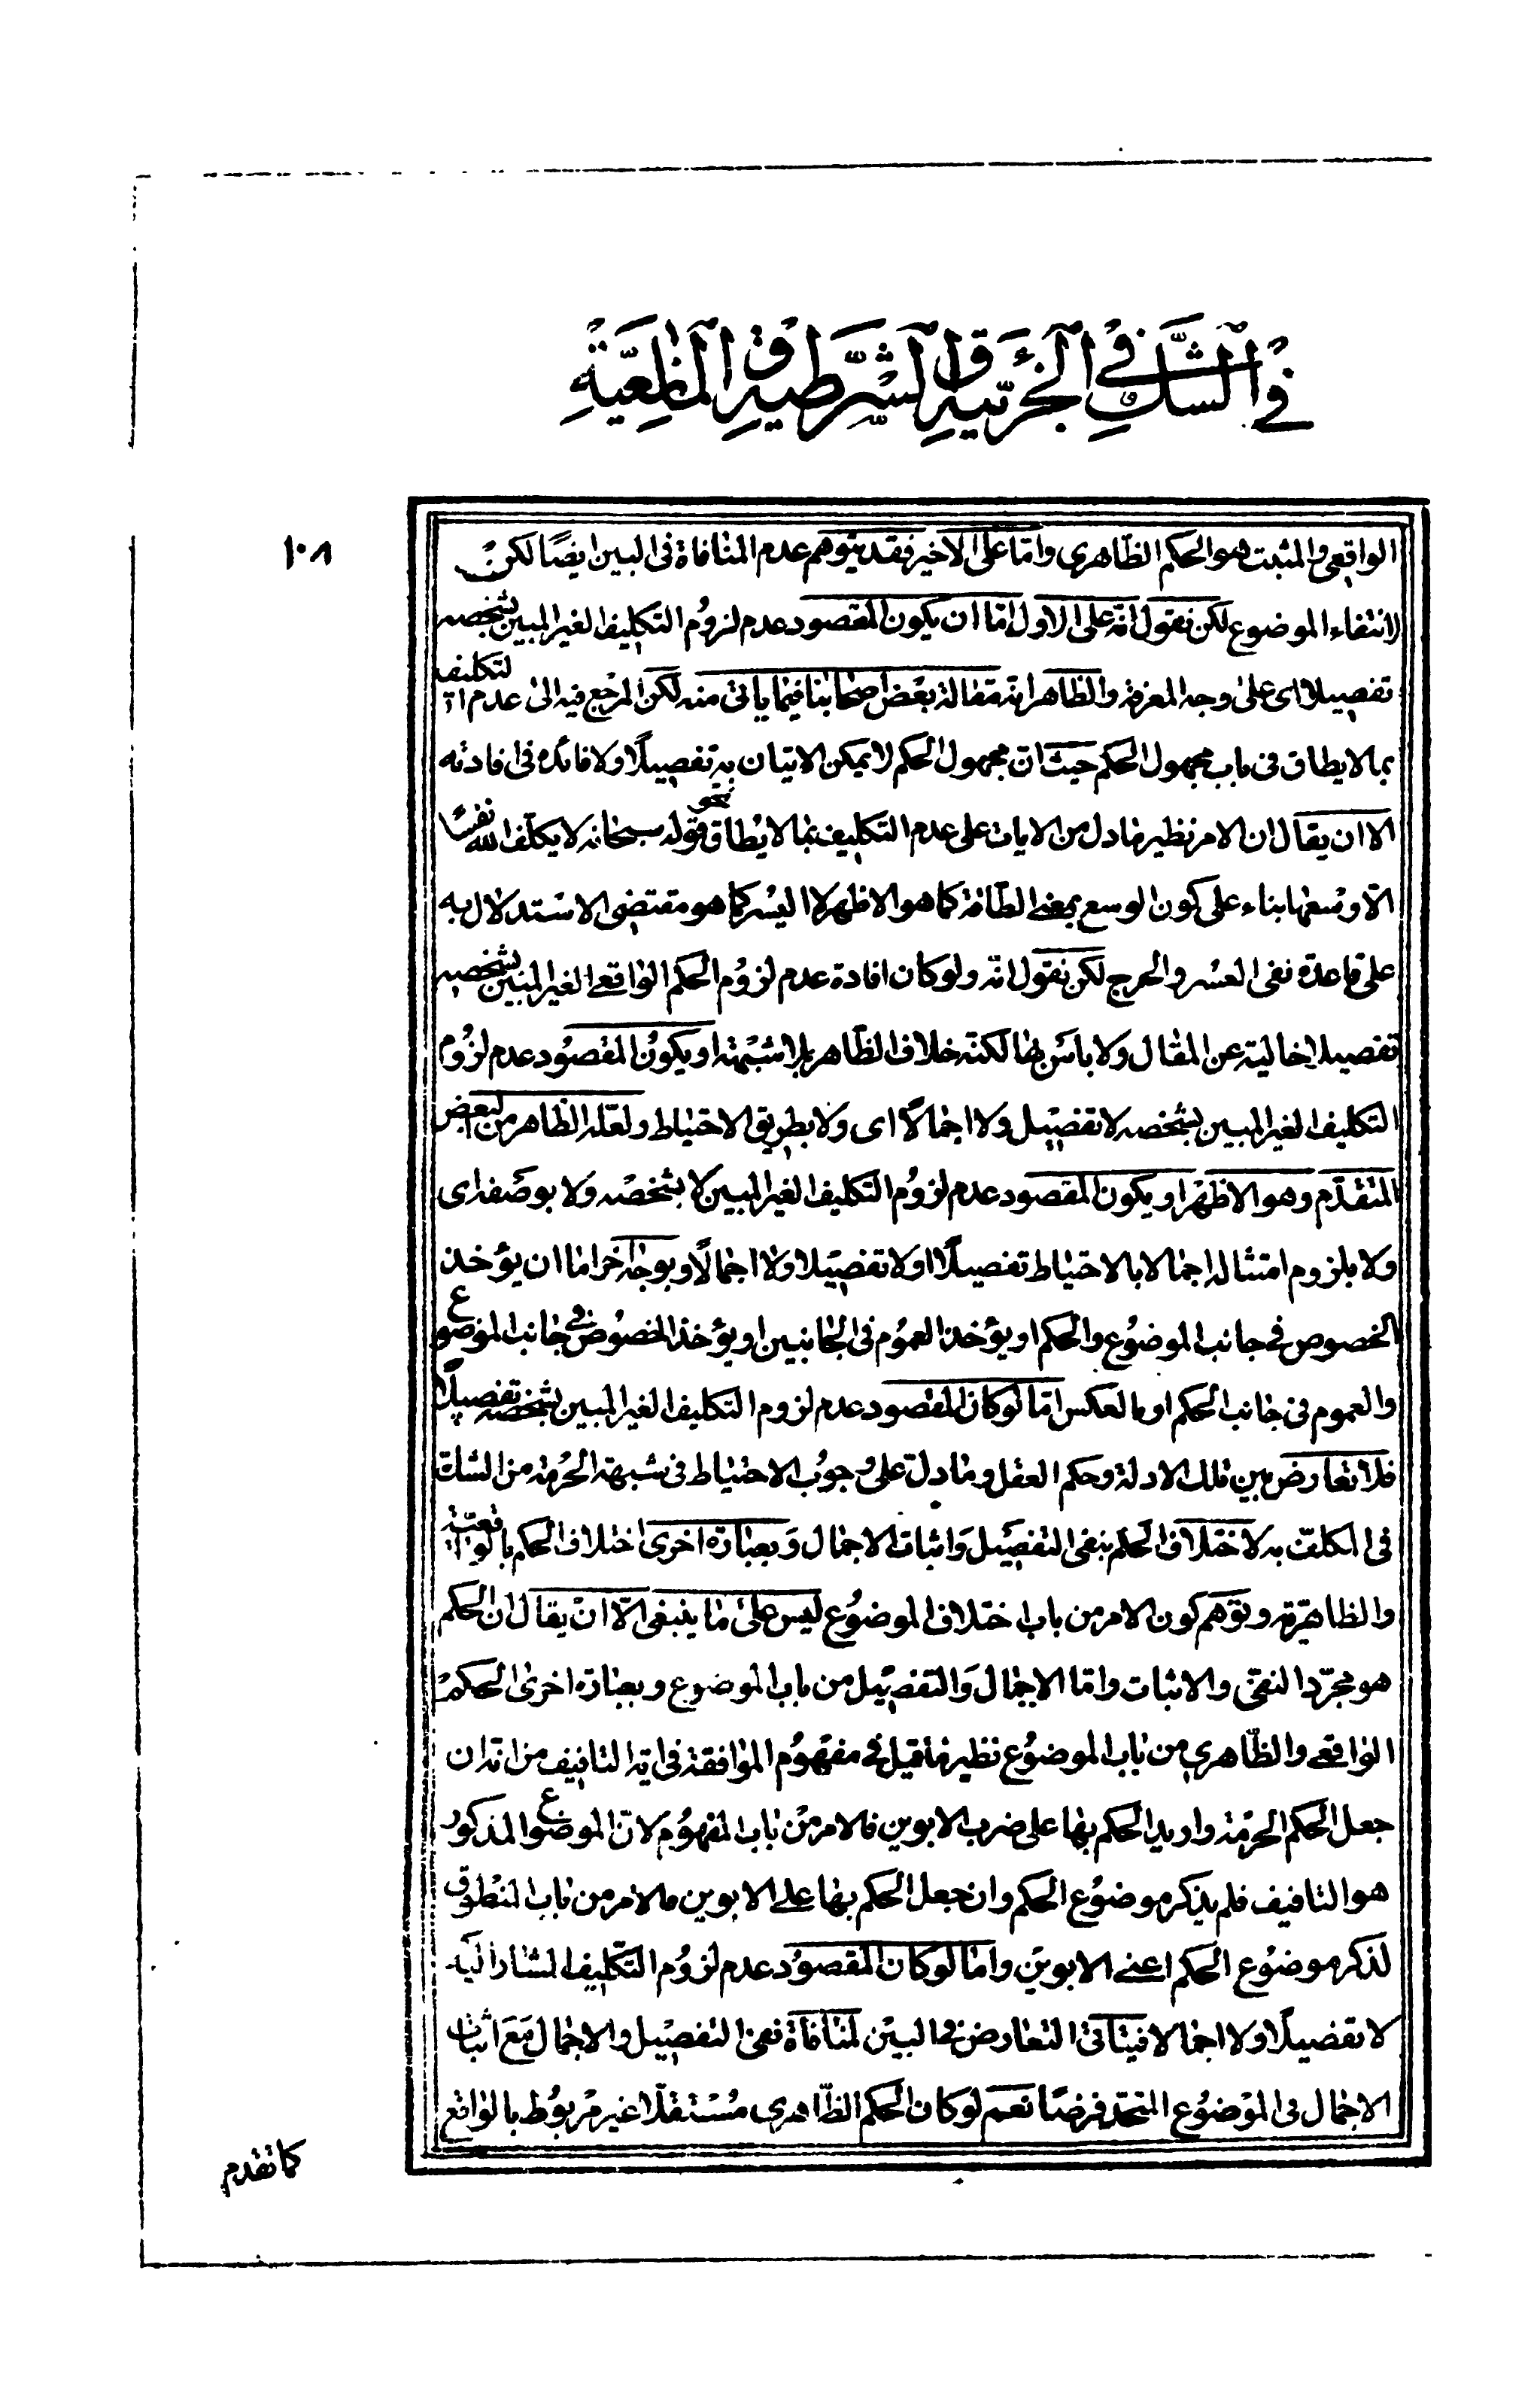 في الشك في الجزئية والشرطية والمانعية
١٠٨
الواقعى والمثبت هو الحكم الظاهرى وامّا على الاخير فقد يتوهم عدم المنافاة فى البين ايضًا لكن
لانتفاء الموضوع لكن نقول انّه على الاول امّا ان يكون المقصود عدم لزوم التكليف الغير المبين بشخصه
تفصيلا اى على وجه المعرفة والظاهر انّه مقالة بعض اصحابنا فيما ياتى منه لكن المرجع فيه الى عدم التكليف
بما لا يطاق فى باب مجهول الحكم حيث انّ مجهول الحكم لا يمكن الاتيان به تفصيلًا ولا فائدة فى افادته
الا ان يقال ان الامر نظير ما دل من الايات على عدم التكليف بما لا يطاق نحو قوله سبحانه لا يكلّف الله نفسًا
الّا وسعها بناء على كون الوسع بمعنى الطاقة كما هو الاظهر لا اليسر كما هو مقتضى الاستدلال به
على قاعدة نفى العسر والحرج لكن نقول انّه ولو كان افادة عدم لزوم الحكم الواقعى الغير المبين بشخصه
تفصيلا خالية عن المقال ولا باس بها لكنّه خلاف الظاهر بلا شبهة او يكون المقصود عدم لزوم
التكليف الغير المبين بشخصه لا تفصيل ولا اجمالًا اى ولا بطريق الاحتياط ولعلّه الظاهر من البعض
المتقدّم وهو الاظهر او يكون المقصود عدم لزوم التكليف الغير المبين لا بشخصه ولا بوصفه اى
ولا بلزوم امتثاله اجمالا بالاحتياط تفصيلًا او لا تفصيلا ولا اجمالًا وبوجه اخر امّا ان يؤخذ
الخصوص فى جانب الموضوع والحكم او يؤخذ العموم فى الجانبين او يؤخذ الخصوص فى جانب الموضوع
والعموم فى جانب الحكم او بالعكس امّا لو كان المقصود عدم لزوم التكليف الغير المبين بشخصه تفصيلًا
فلا تعارض بين تلك الادلة وحكم العقل وما دلّ على وجوب الاحتياط فى شبهة الحرمة من الشك
فى المكلّف به لاختلاف الحكم بنفى التفصيل واثبات الاجمال وبعبارة اخرى اختلاف الحكم بالواقعيّة
والظاهريّة وتوهم كون الامر من باب اختلاف الموضوع ليس على ما ينبغى الّا ان يقال ان الحكم
هو مجرّد النفى والاثبات وامّا الاجمال والتفصيل من باب الموضوع وبعبارة اخرى الحكم
الواقعى والظاهرى من باب الموضوع نظير ما قيل فى مفهوم الموافقة فى اية التافيف من انّه ان
جعل الحكم الحرمة واريد الحكم بها على ضرب الابوين فالامر من باب المفهوم لانّ الموضوع المذكور
هو التافيف فلم يذكر موضوع الحكم وان جعل الحكم بها على الابوين فالامر من باب المنطوق
لذكر موضوع الحكم اعنى الابوين وامّا لو كان المقصود عدم لزوم التكليف المشار اليه
لا تفصيلًا ولا اجمالا فيتاتى التعارض فى البين لمنافاة نفى التفصيل والاجمال مع اثبات
الاجمال فى الموضوع المتحد فرضًا نعم لو كان الحكم الظاهرى مستقلّا غير مربوط بالواقع
كما تقدم